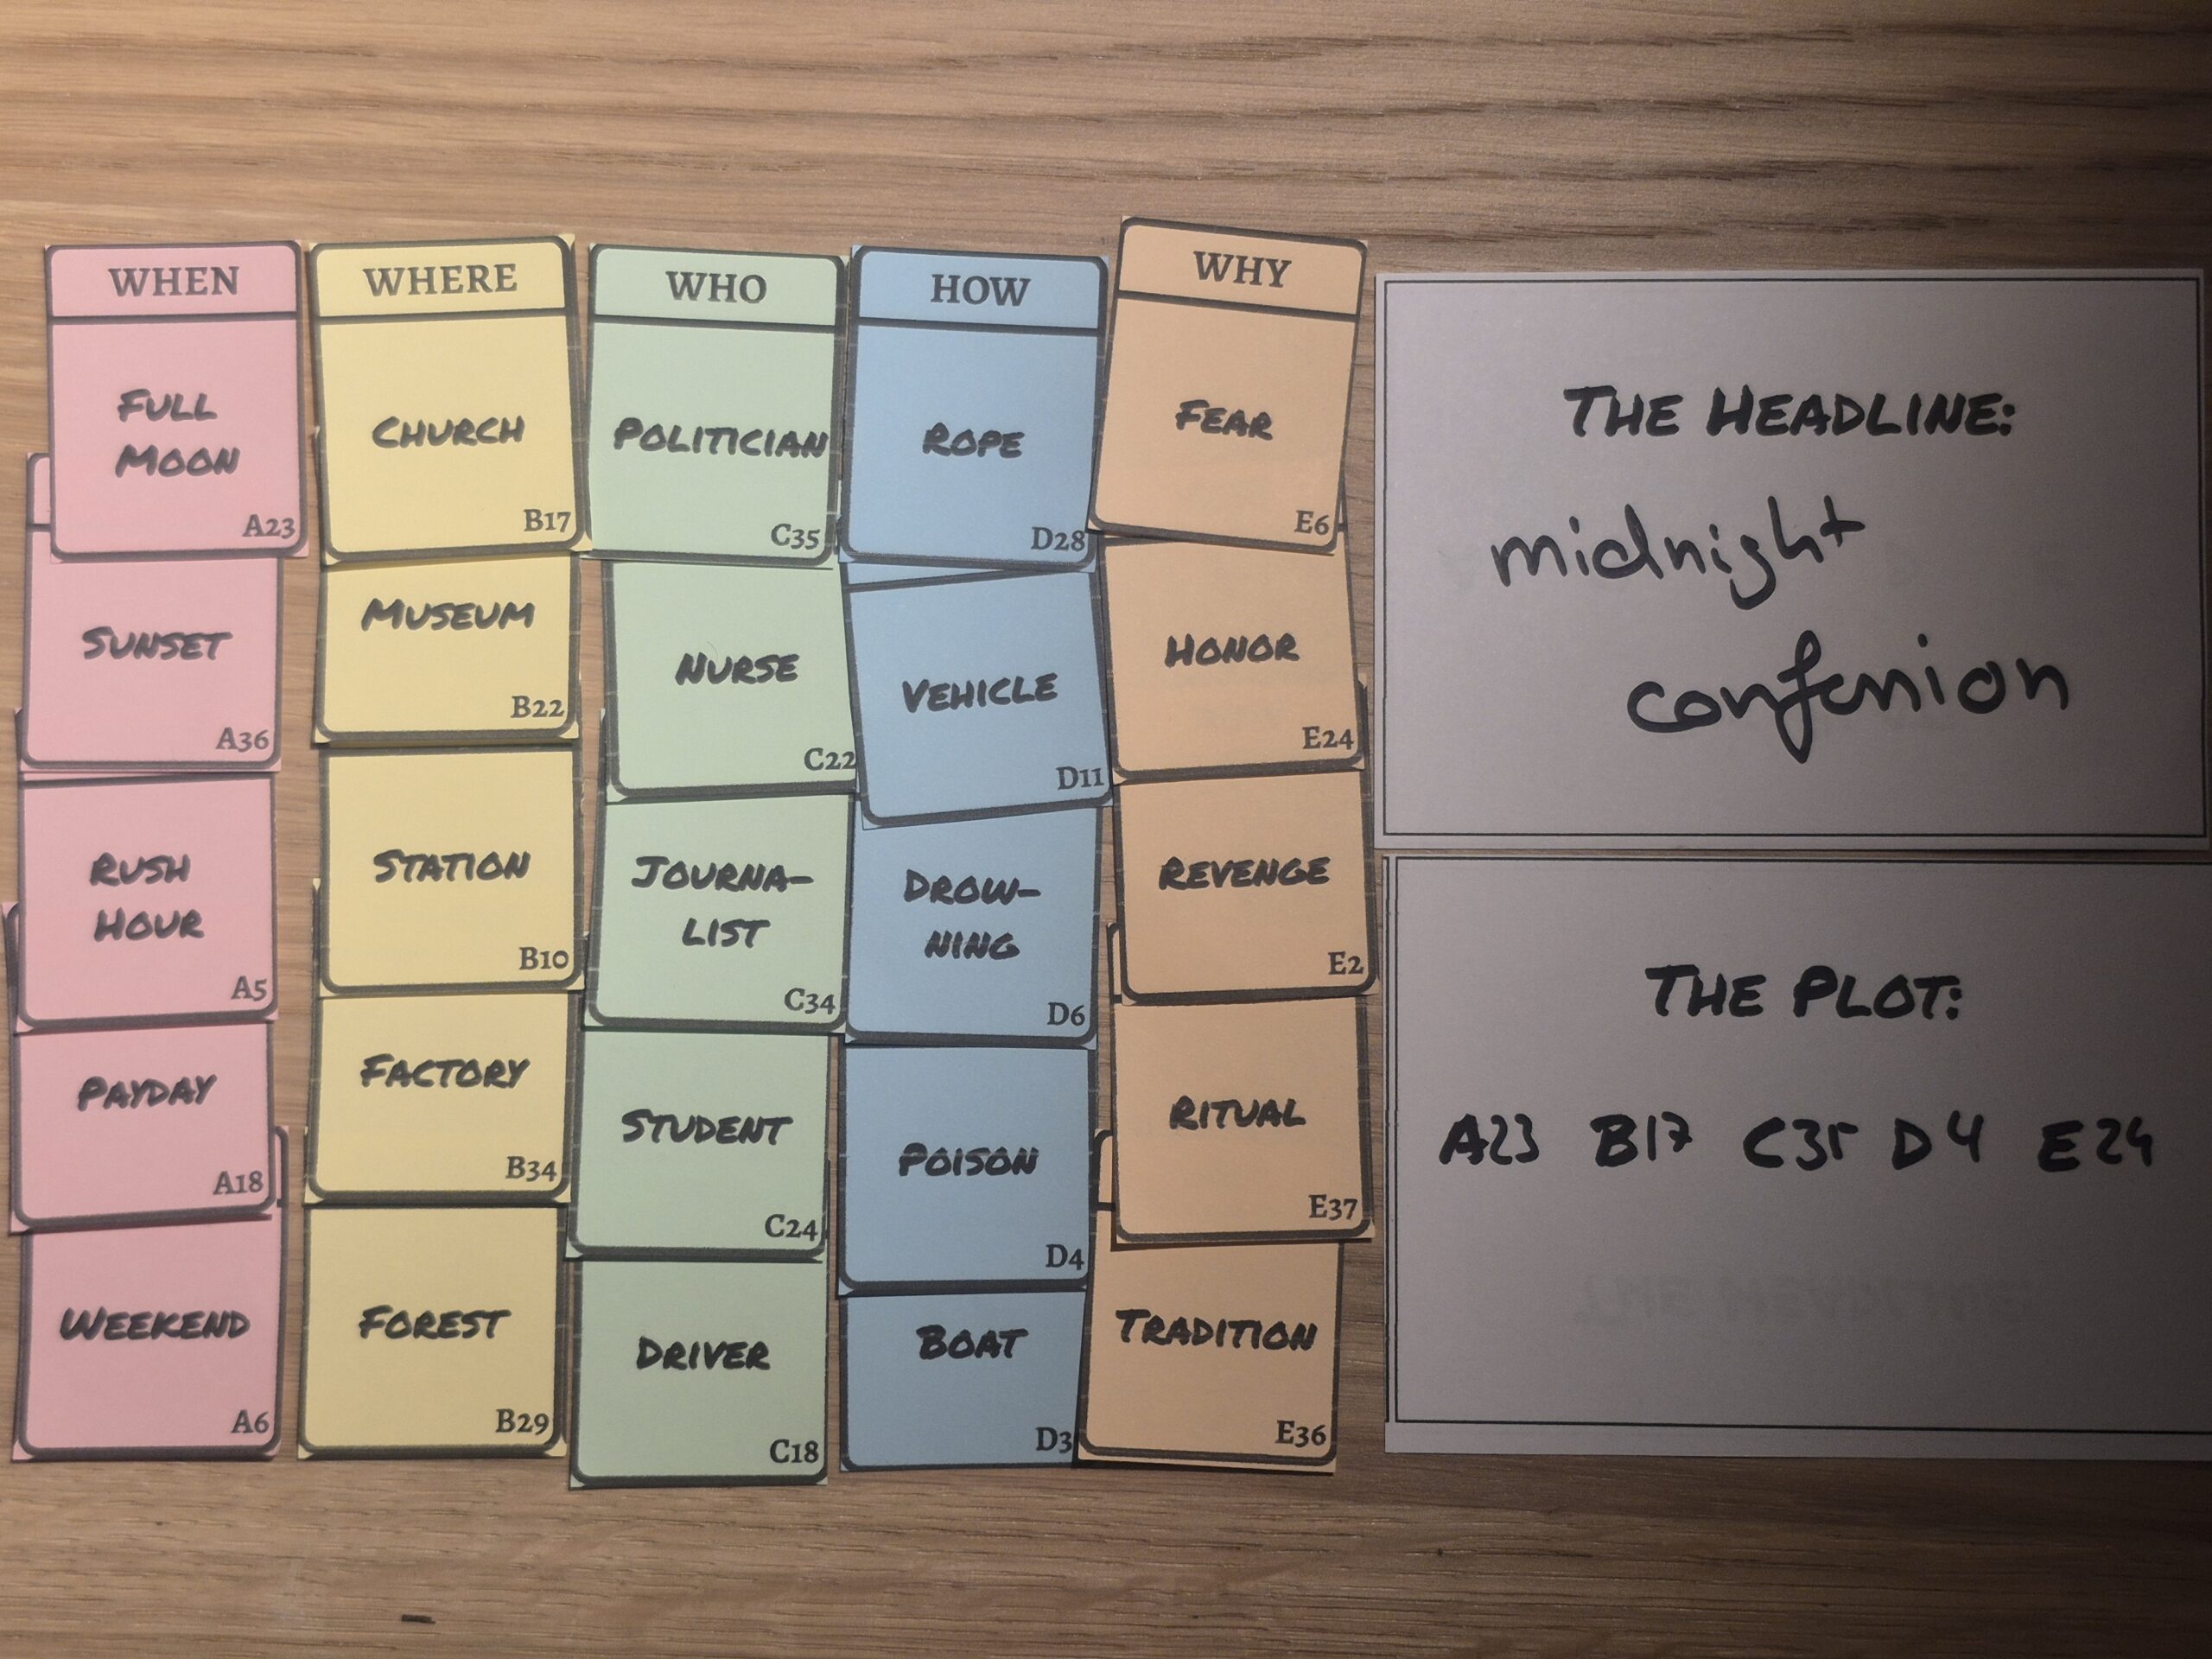 WHEN
FULL
MOON
A23
SUNSET
A36
RUSH
HOUR
A5
PAYDAY
A18
WEEKEND
A6
WHERE
CHURCH
B17
MUSEUM
B22
STATION
B10
FACTORY
B34
FOREST
B29
WHO
POLITICIAN
C35
NURSE
C22
JOURNA-
LIST
C34
STUDENT
C24
DRIVER
C18
HOW
ROPE
D28
VEHICLE
D11
DROW-
NING
D6
POISON
D4
BOAT
D3
WHY
FEAR
E6
HONOR
E24
REVENGE
E2
RITUAL
E37
TRADITION
E36
THE HEADLINE:
midnight
confession
THE PLOT:
A23 B17 C35 D4 E24